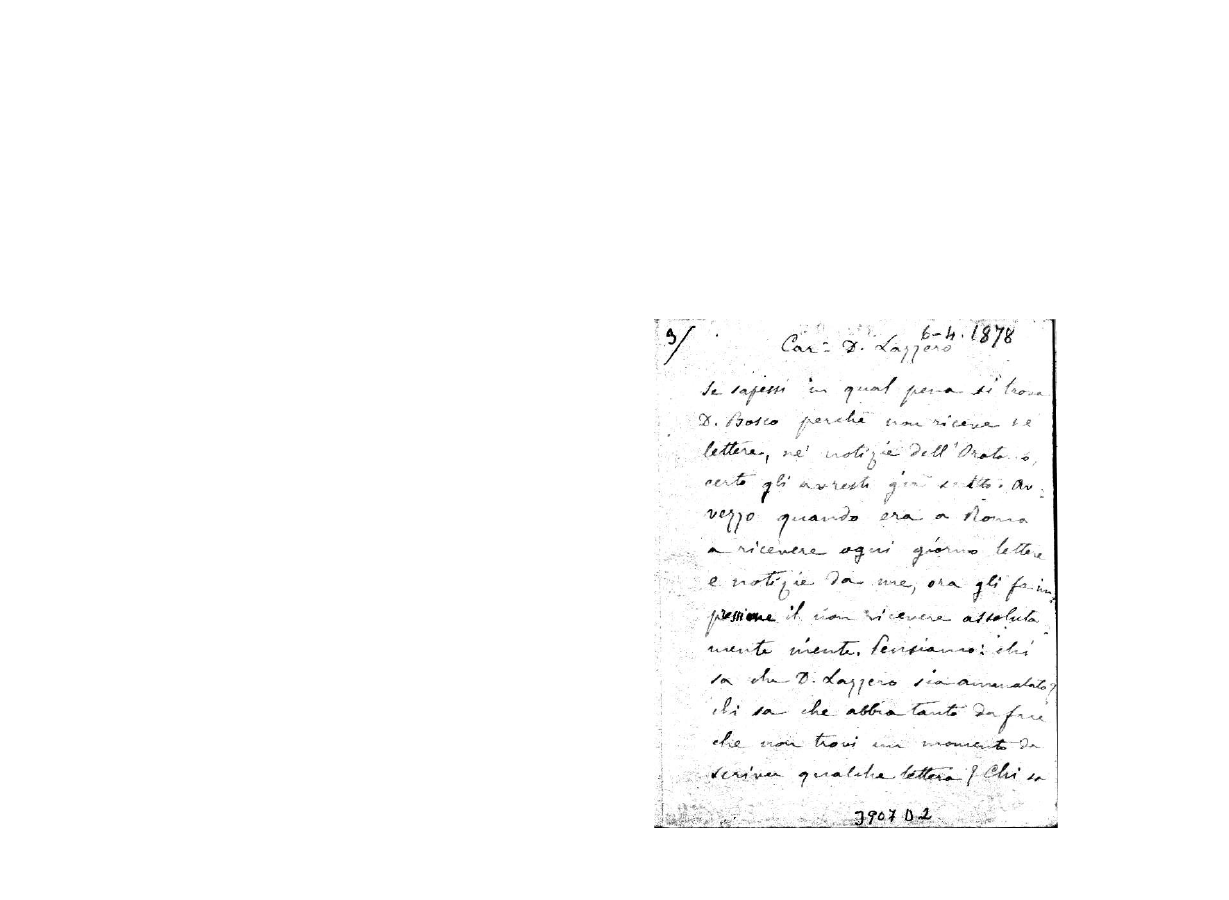 3/
6-4.1878
Car.º D. Lazzero
Se sapessi in qual pena si trova
D. Bosco perchè non riceve nè
lettere, nè notizie dell'Oratorio,
certo gli avresti già scritto. Av-
vezzo quando era a Roma
a ricevere ogni giorno lettere
e notizie da me, ora gli fa im,
pressione il non ricevere assoluta
mente niente. Pensiamo: chi
sa che D. Lazzero sia ammalato?
chi sa che abbia tanto da fare
che non trovi un momento da
scriver qualche lettera? Chi sa
3907 D 2